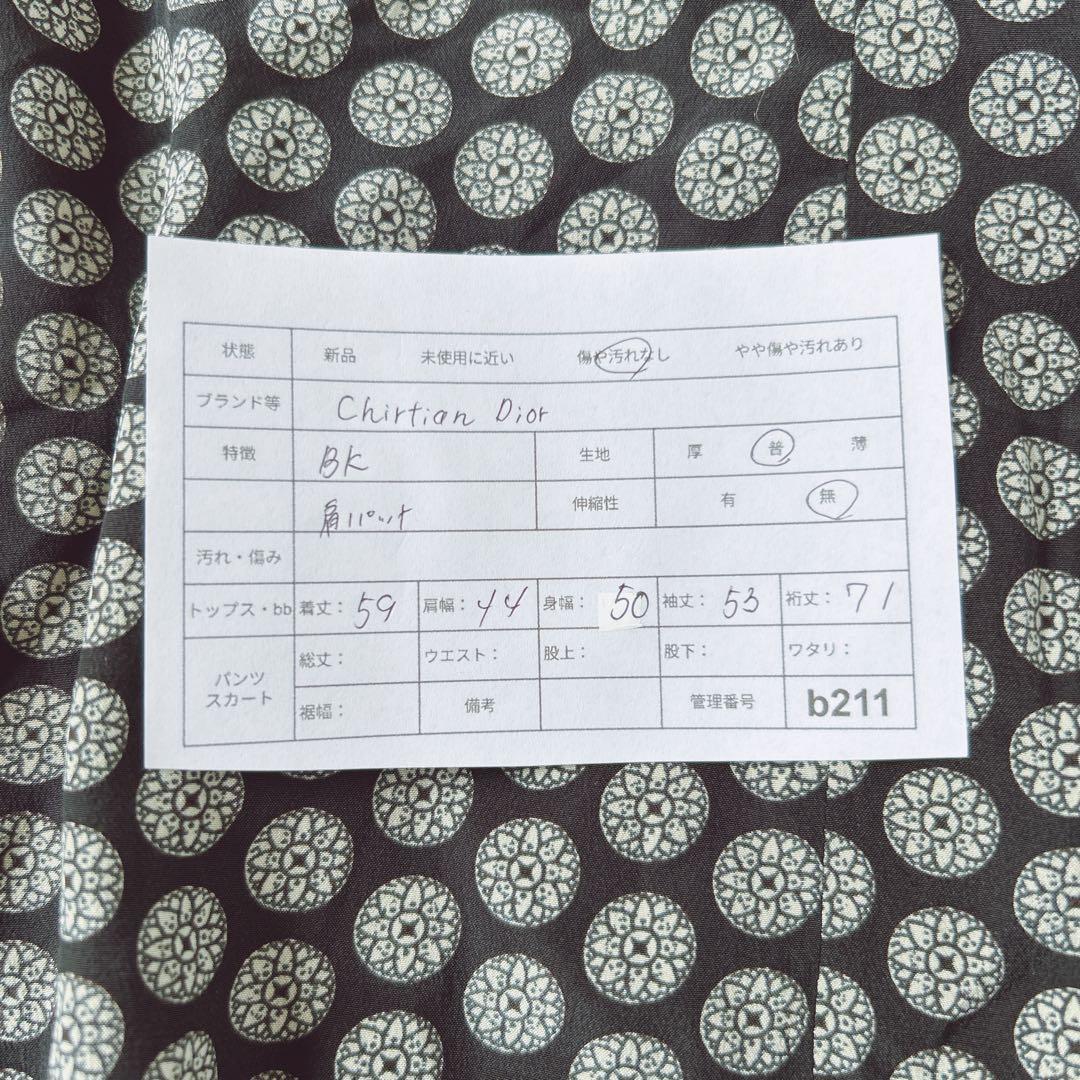 状態 新品 未使用に近い 傷や汚れなし やや傷や汚れあり
ブランド等 Chirtian Dior
特徴 BK 生地 厚 普 薄
肩パット 伸縮性 有 無
汚れ・傷み
トップス・bb 着丈: 59 肩幅: 44 身幅: 50 袖丈: 53 裄丈: 71
パンツ スカート 総丈: ウエスト: 股上: 股下: ワタリ:
裾幅: 備考 管理番号 b211